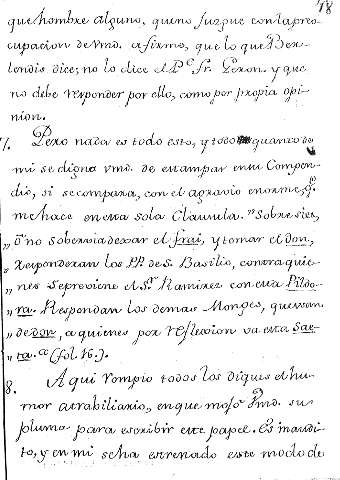 18
que hombre alguno, que no juzgue con la preo
cupacion de Vmd. afirmo, que lo que Ber-
lendis dice; no lo dice el P.e fr. Geron. y que
no debe responder por ello, como por propia opi-
nion.
7. Pero nada es todo esto, y todo quanto de
mi se digna vmd. de estampar en su Compen-
dio, si se compara, con el agravio enorme, q.e
me hace en esta sola Clausula. "Sobre si es,
" ò no sobervia dexar el frai, y tomar el don,
" responderan los PP. de S. Basilio, contra quie-
" nes se previene el S.r Ramirez con esta Pildo-
" ra. Respondan los demas Monges, que usan
" de don, a quienes por reflexion va esta Sae-
" ta. &c (fol. 16.).
8. Aqui rompio todos los diques el hu-
mor atrabiliario, en que mojó Vmd. su
pluma para escribir este papel. Es inaudi-
to, y en mi se ha estrenado este modo de